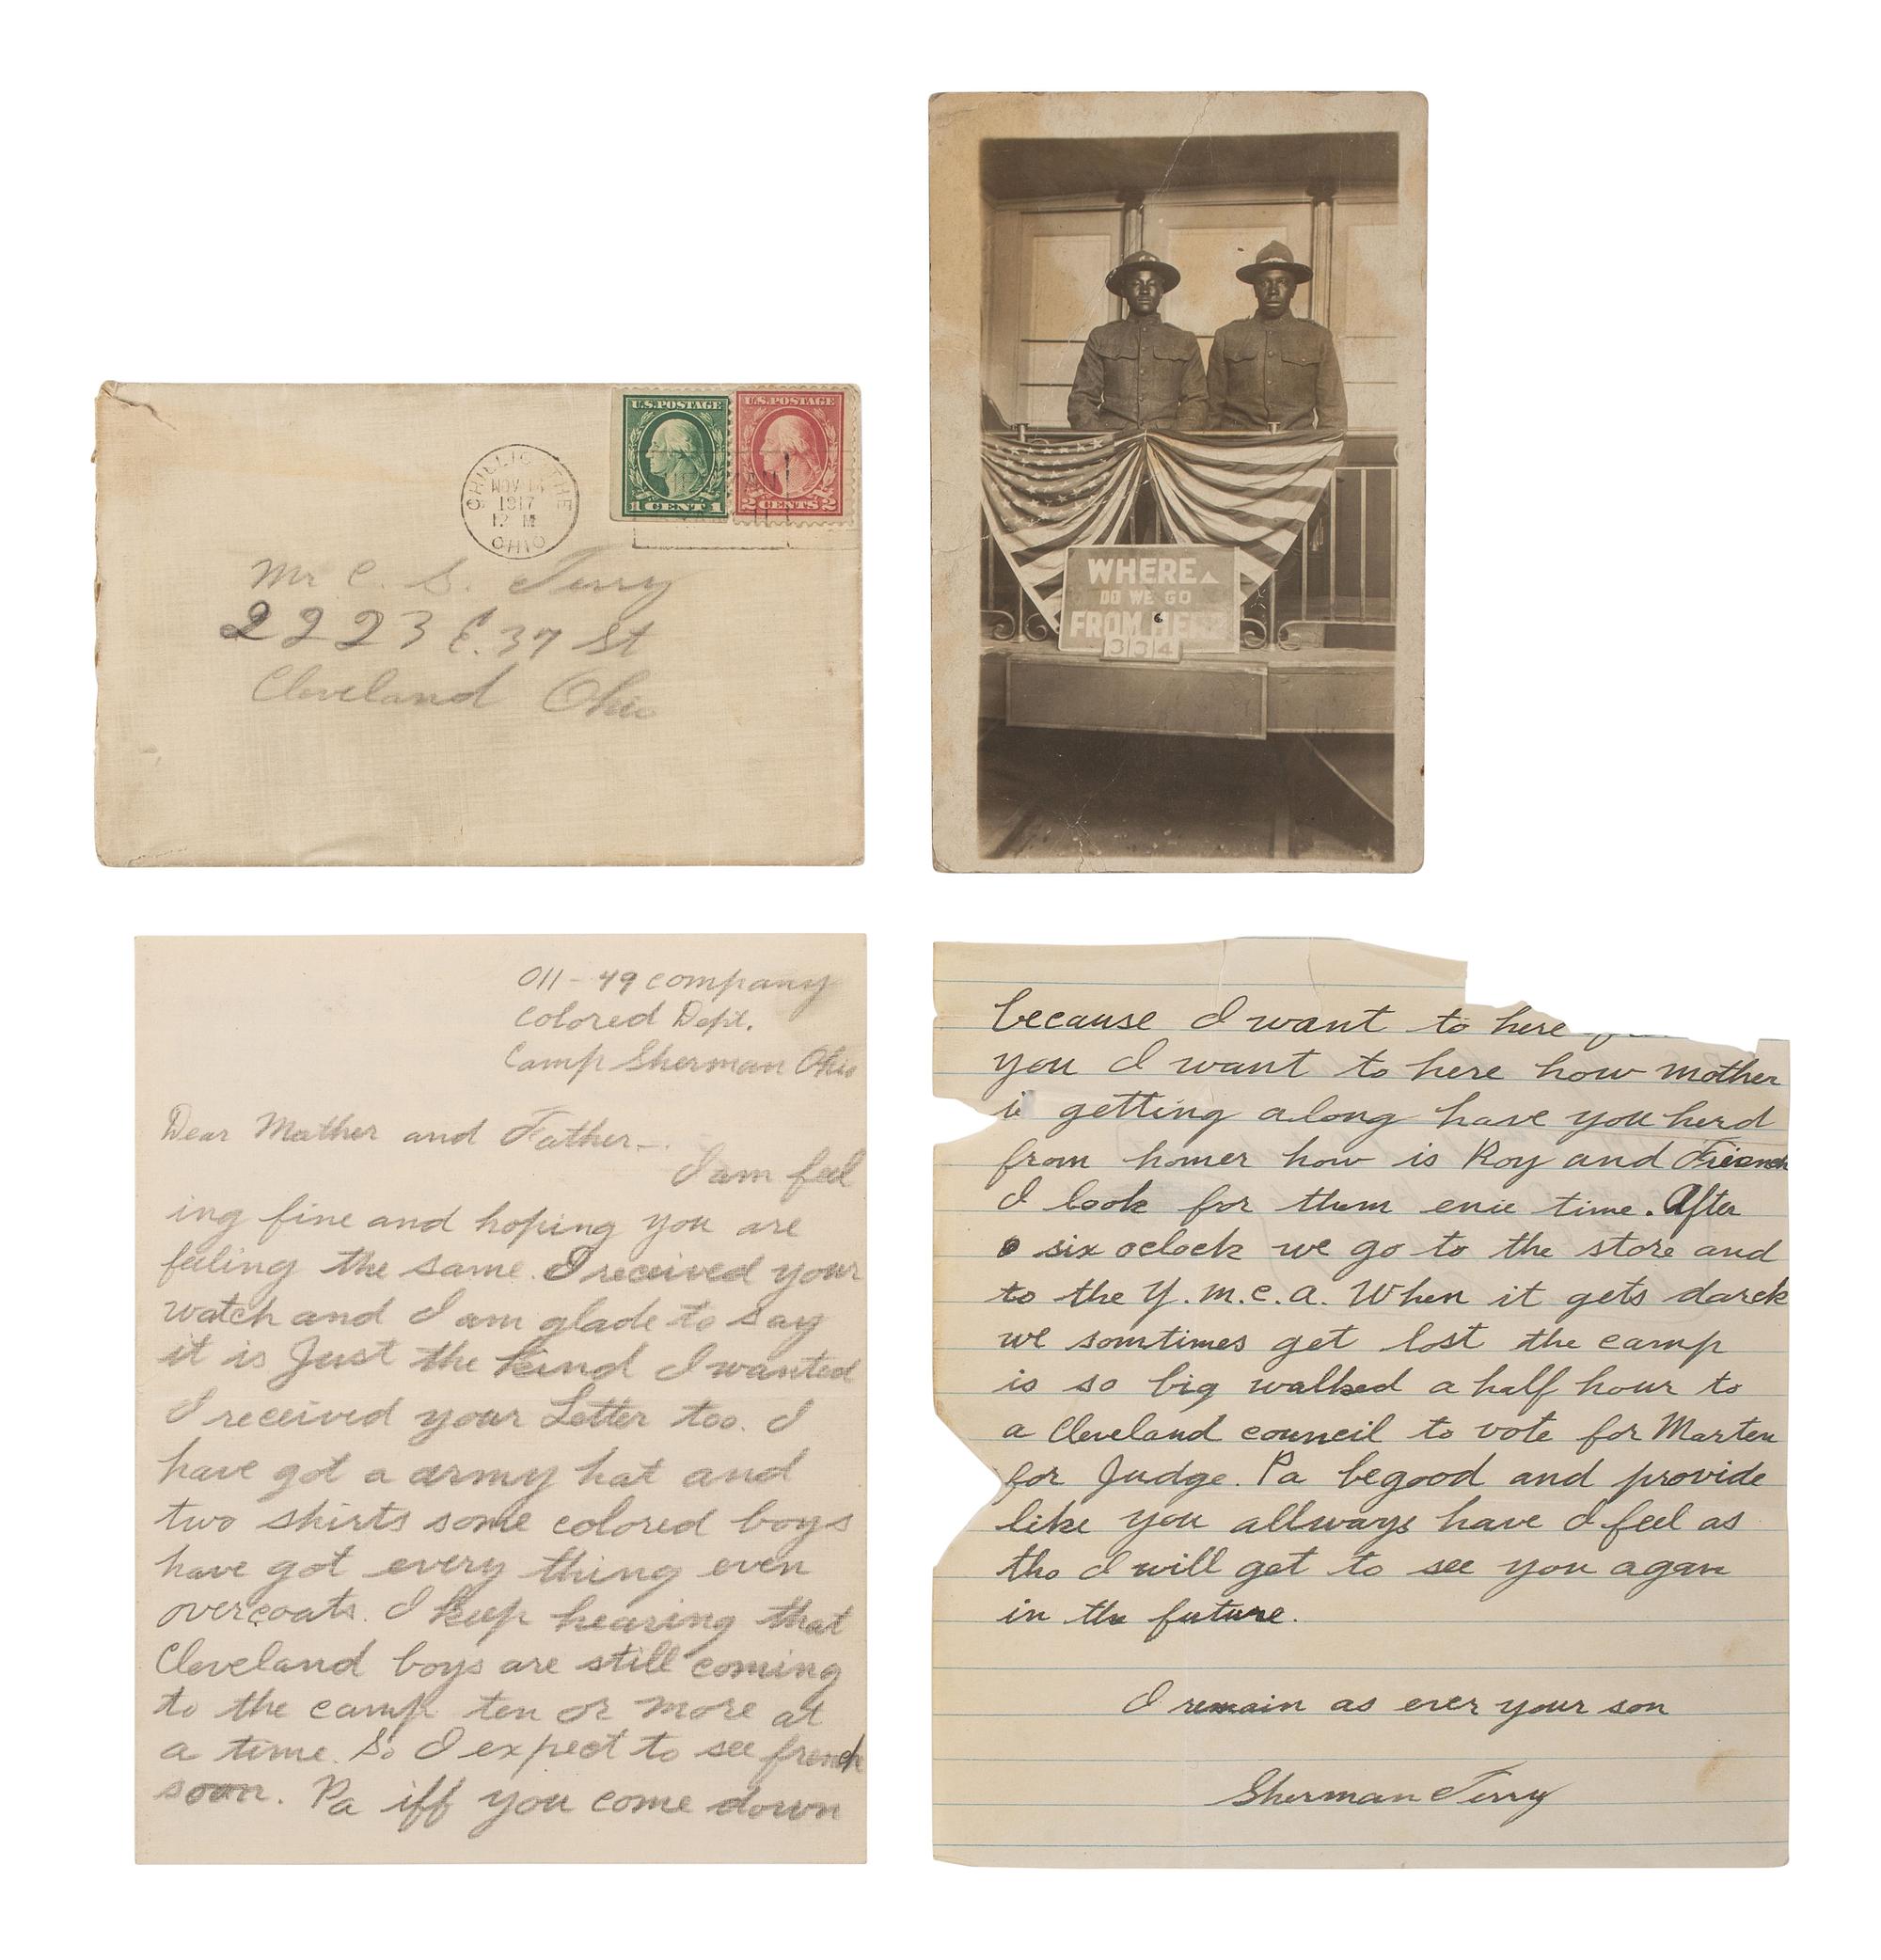 U.S. POSTAGE
1 CENT 1
U.S. POSTAGE
2 CENTS 2
CHILLICOTHE
NOV
1917
12 M
OHIO
Mr C. S. Terry
2223 E. 37 St
Cleveland Ohio
WHERE
DO WE GO
FROM HERE
334
011-49 company
Colored Dept.
Camp Sherman Ohio
Dear Mother and Father-.
I am feel
ing fine and hoping you are
feeling the same. I received your
watch and I am glade to say
it is Just the kind I wanted
I received your Letter too. I
have got a army hat and
two shirts some colored boys
have got every thing even
overcoats. I keep hearing that
Cleveland boys are still coming
to the camp ten or more at
a time. So I expect to see french
soon. Pa iff you come down
because I want to here
you I want to here how mother
is getting along have you herd
from homer how is Roy and
I look for them enie time. After
six oclock we go to the store and
to the Y.M.C.A. When it gets darck
we somtimes get lost the camp
is so big walked a half hour to
a Cleveland council to vote for Marten
for Judge. Pa begood and provide
like you allways have I feel as
tho I will get to see you agan
in the future.
I remain as ever your son
Sherman Terry